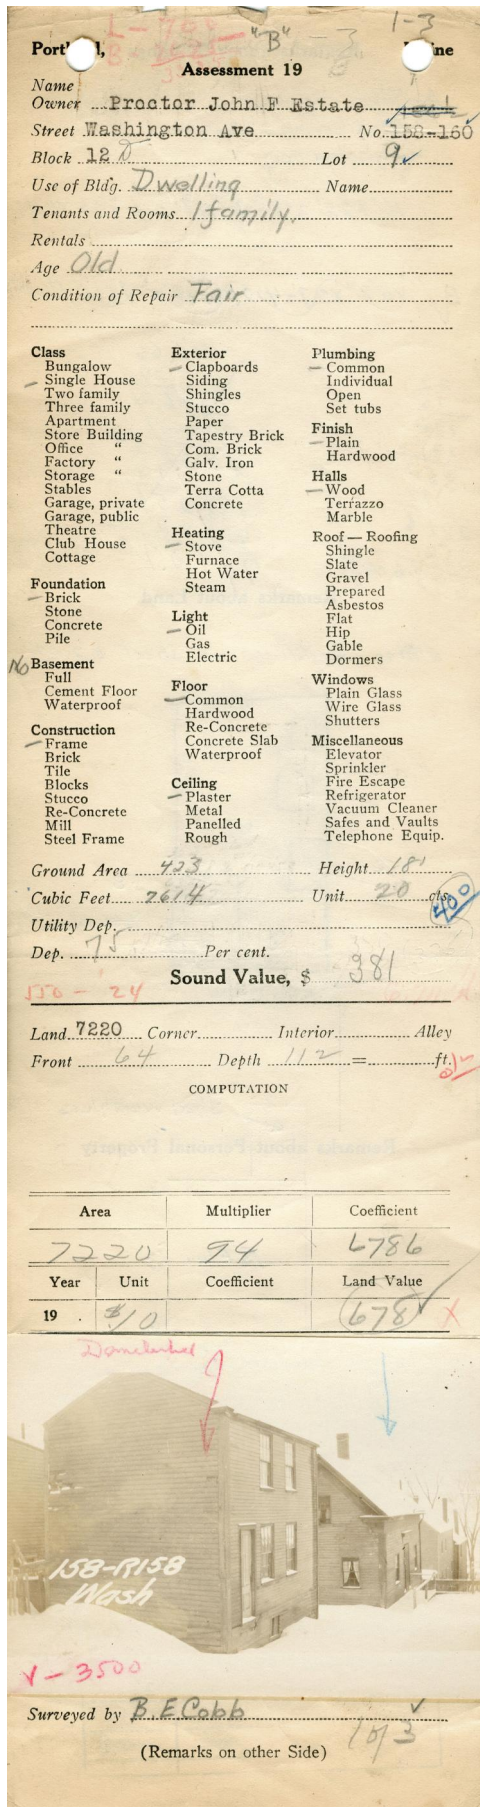 "B" 1-3
Portl d, ine
Assessment 19
Name
Owner Proctor John F Estate
Street Washington Ave No. 158-160
Block 12 D Lot 9
Use of Bldg. Dwelling Name
Tenants and Rooms 1 family.
Rentals
Age Old
Condition of Repair Fair
Class
Bungalow
Single House
Two family
Three family
Apartment
Store Building
Office "
Factory "
Storage "
Stables
Garage, private
Garage, public
Theatre
Club House
Cottage
Foundation
Brick
Stone
Concrete
Pile
No Basement
Full
Cement Floor
Waterproof
Construction
Frame
Brick
Tile
Blocks
Stucco
Re-Concrete
Mill
Steel Frame
Exterior
Clapboards
Siding
Shingles
Stucco
Paper
Tapestry Brick
Com. Brick
Galv. Iron
Stone
Terra Cotta
Concrete
Heating
Stove
Furnace
Hot Water
Steam
Light
Oil
Gas
Electric
Floor
Common
Hardwood
Re-Concrete
Concrete Slab
Waterproof
Ceiling
Plaster
Metal
Panelled
Rough
Plumbing
Common
Individual
Open
Set tubs
Finish
Plain
Hardwood
Halls
Wood
Terrazzo
Marble
Roof — Roofing
Shingle
Slate
Gravel
Prepared
Asbestos
Flat
Hip
Gable
Dormers
Windows
Plain Glass
Wire Glass
Shutters
Miscellaneous
Elevator
Sprinkler
Fire Escape
Refrigerator
Vacuum Cleaner
Safes and Vaults
Telephone Equip.
Ground Area 423 Height 18'
Cubic Feet 7614 Unit 20 cts.
400
Utility Dep.
Dep. 75 Per cent.
Sound Value, $ 381
550 - 24
Land 7220 Corner Interior Alley
Front 64 Depth 112 = ft.
COMPUTATION
Area Multiplier Coefficient
7220 94 6786
Year Unit Coefficient Land Value
19 . $10 678 X
158-R158
Wash
V - 3500
Surveyed by B.E Cobb
1 of 3
(Remarks on other Side)